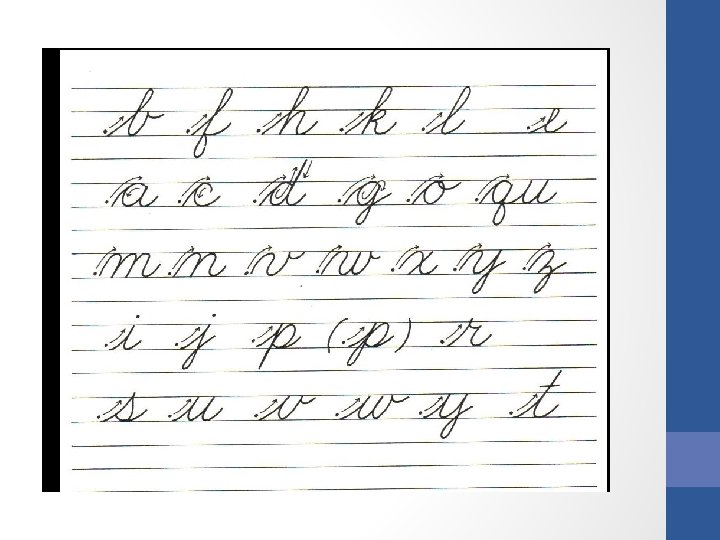 b f h k l e
a c d g o qu
m n v w x y z
i j p (p) r
s u v w y t